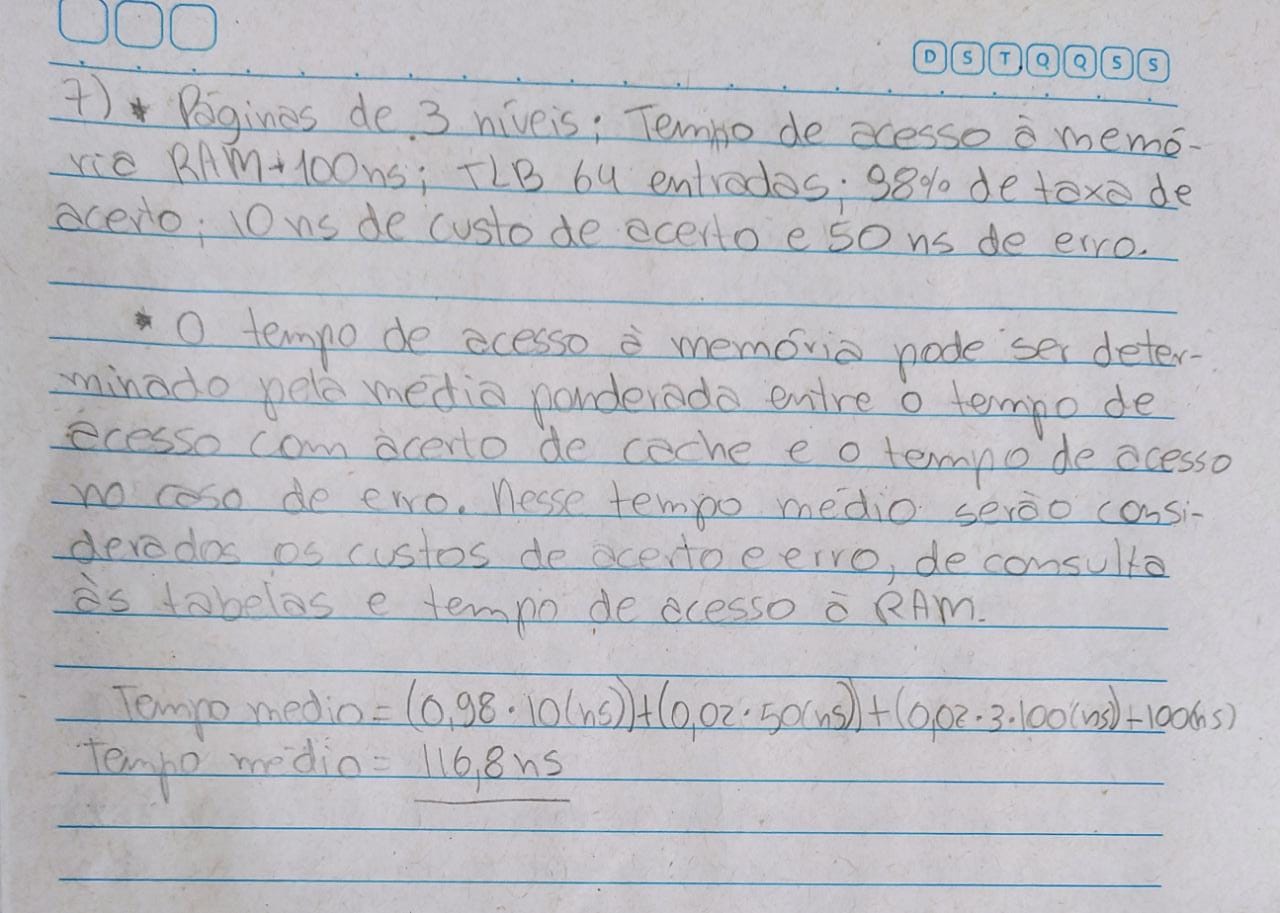 D S T Q Q S S
7) * Páginas de 3 níveis; Tempo de acesso à memó-
ria RAM→100ns; TLB 64 entradas; 98% de taxa de
acerto; 10 ns de custo de acerto e 50 ns de erro.
* O tempo de acesso à memória pode ser deter-
minado pela média ponderada entre o tempo de
acesso com acerto de cache e o tempo de acesso
no caso de erro. Nesse tempo médio serão consi-
derados os custos de acerto e erro, de consulta
às tabelas e tempo de acesso à RAM.
Tempo medio = (0,98 · 10(ns))+(0,02 · 50(ns))+(0,02 · 3 · 100(ns)+100(ns)
Tempo médio = 116,8 ns